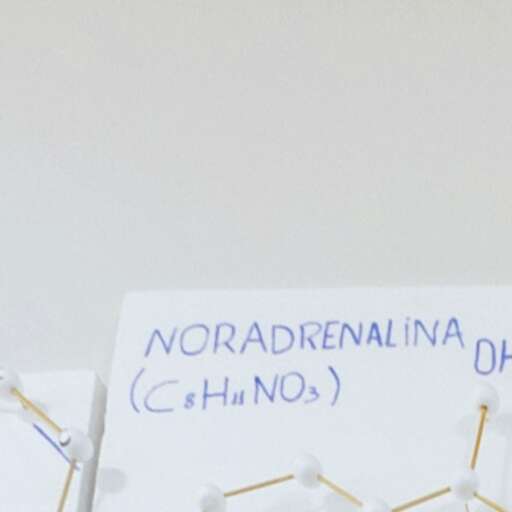 NORADRENALINA
(C₈H₁₁NO₃)
OH